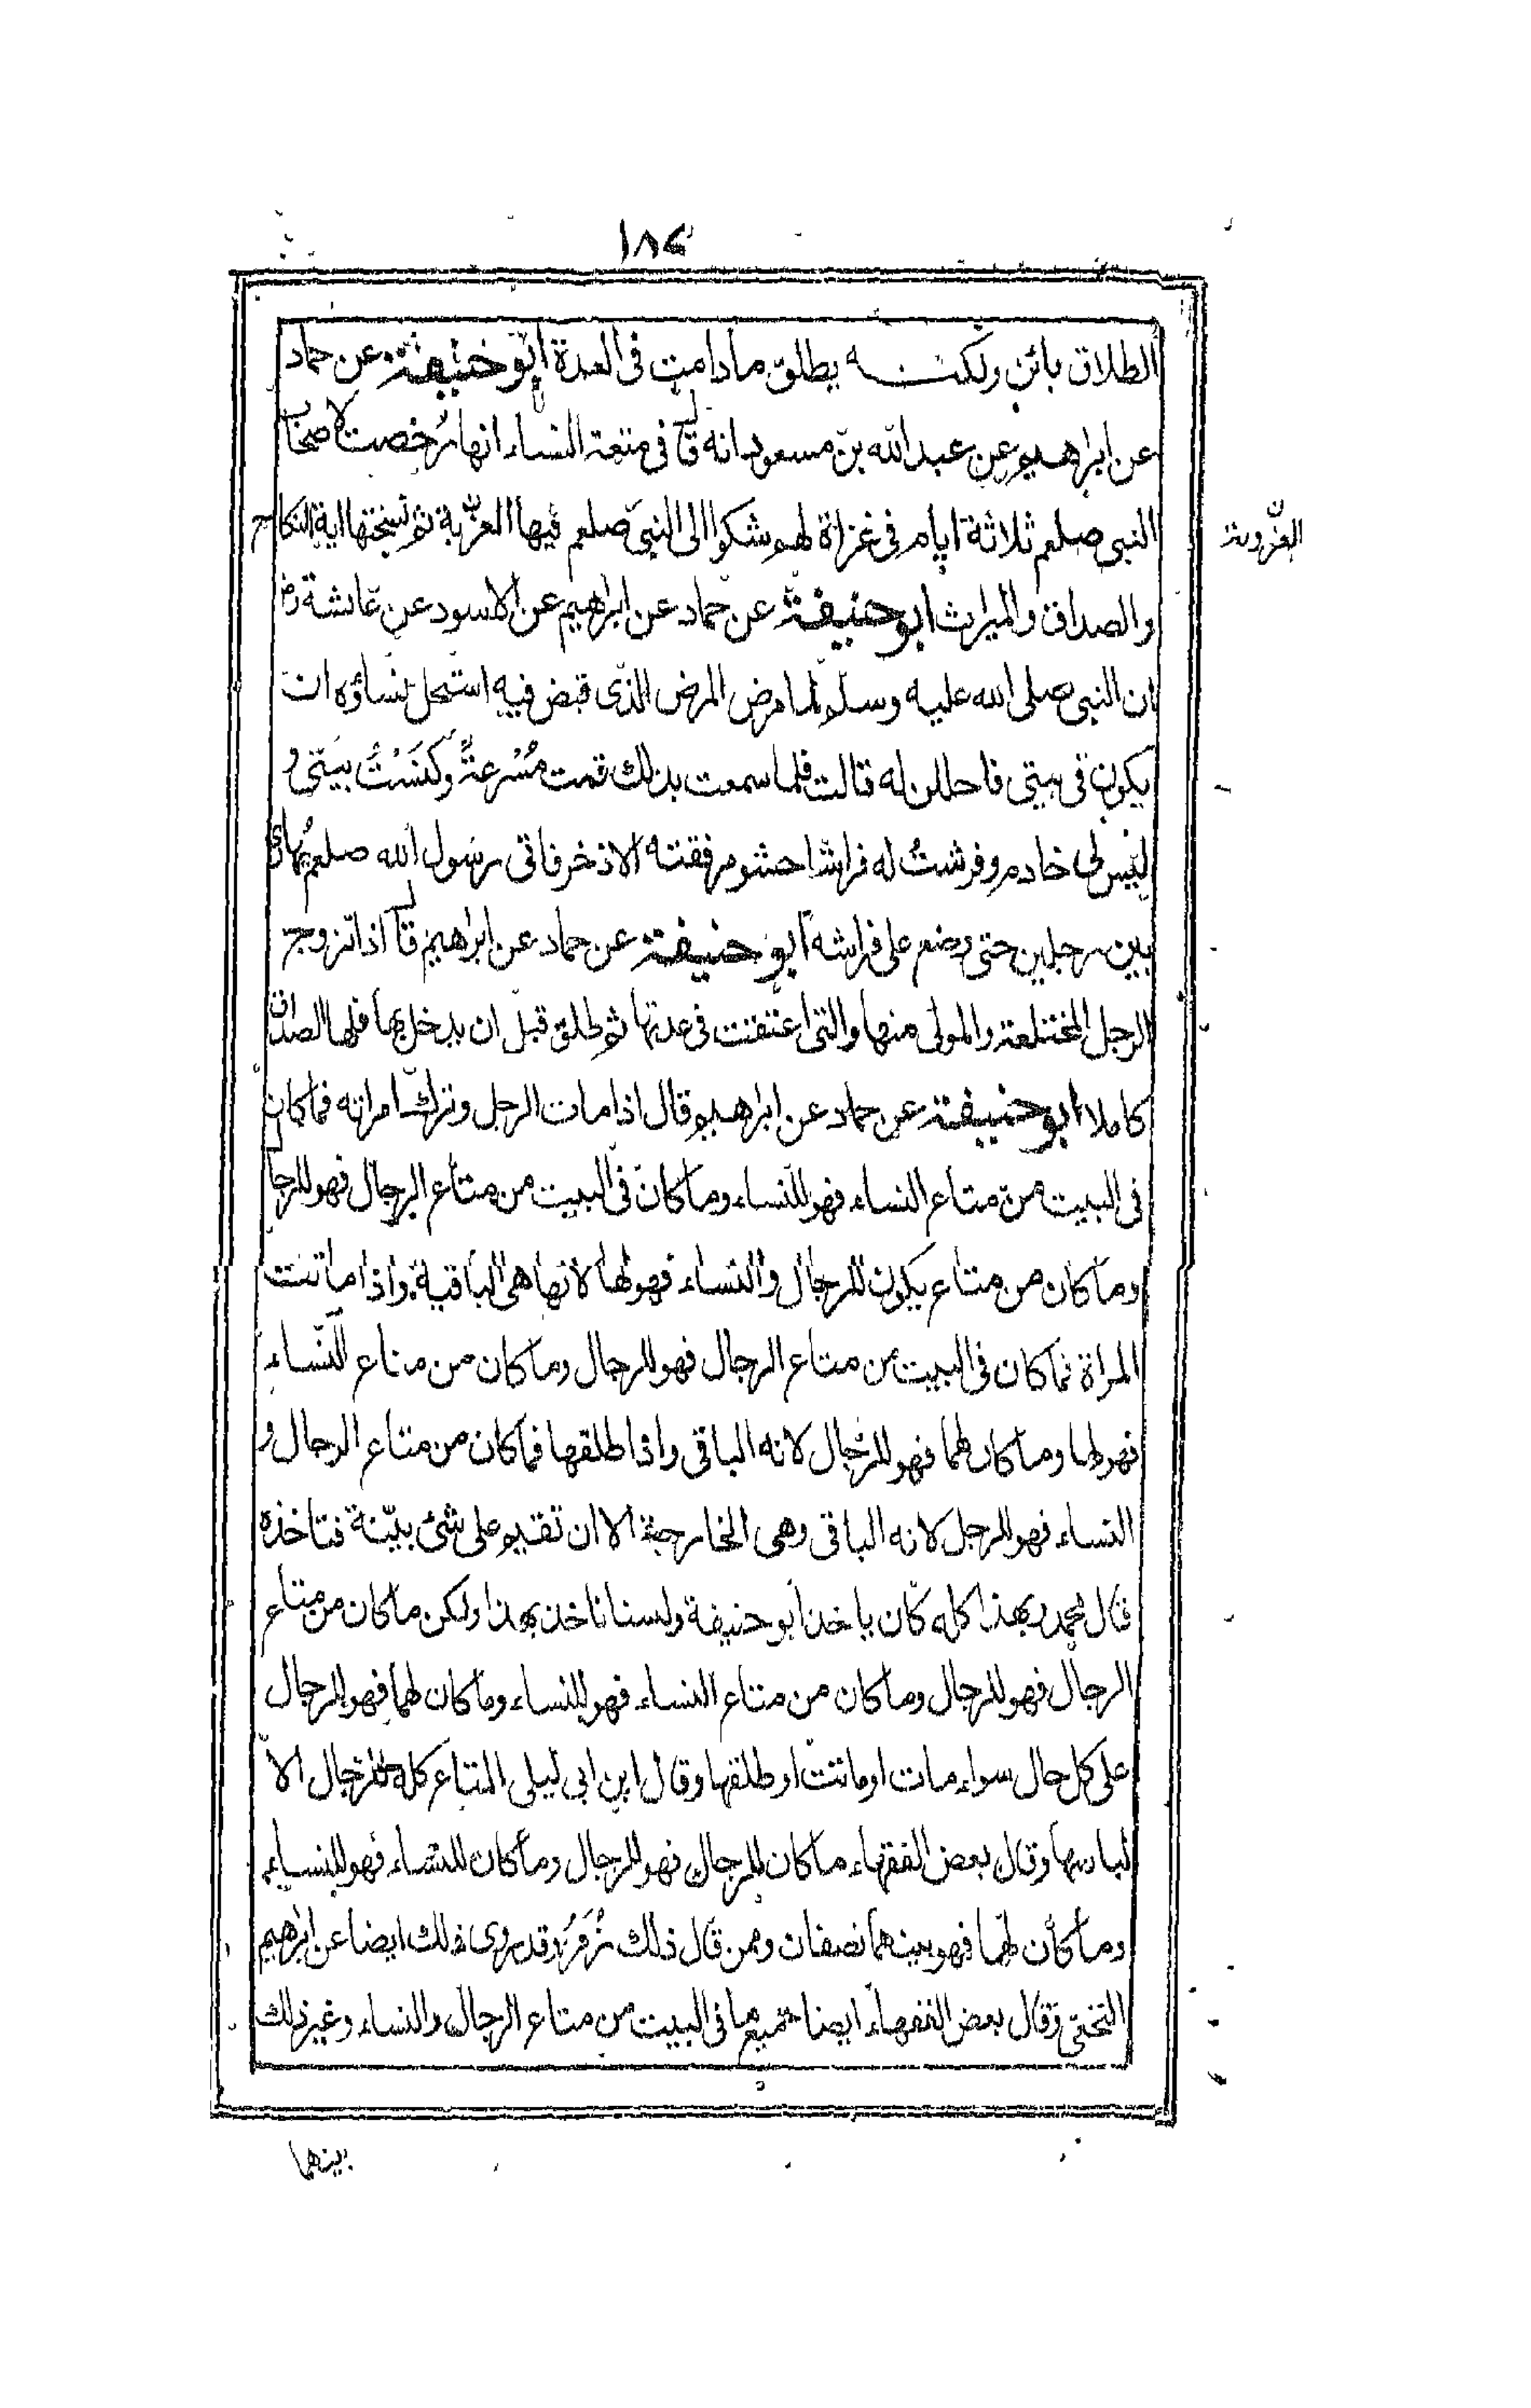 ١٨٤
الطلاق بائن ولكنـــه يطلق مادامت فى العدة ابو حنيفة عن حماد
عن ابراهيم عن عبد الله بن مسعود انه قال فى متعة النساء انها رخصت لاصحاب
النبى صلعم ثلاثة ايام فى غزاة لهم شكوا الى النبى صلعم فيها العزبة ثم نسختها اية النكاح
العزوبة
والصداق والميراث ابو حنيفة عن حماد عن ابراهيم عن الاسود عن عائشة رض
ان النبى صلى الله عليه وسلم لما مرض المرض الذى قبض فيه استحل نساؤه ان
يكون فى بيتى فاحللن له قالت فلما سمعت بذلك قمت مُسْرِعةً وكَنَسْتُ بيتى و
ليس لى خادم وفرشتُ له فراشا حشو مرفقته الاذخر فاتى رسول الله صلعم يُهادى
بين رجلين حتى وضع على فراشه ابو حنيفة عن حماد عن ابراهيم قال اذا تزوج
الرجل المختلعة والمولى منها والتى اعتقت فى عدتها ثم طلق قبل ان يدخل بها فلها الصداق
كاملا ابو حنيفة عن حماد عن ابراهيم قال اذا مات الرجل وترك امراته فما كان
فى البيت من متاع النساء فهو للنساء وما كان فى البيت من متاع الرجال فهو للرجال
وما كان من متاع يكون للرجال والنساء فهو لها لانها هى الباقية واذا ماتت
المراة فما كان فى البيت من متاع الرجال فهو للرجال وما كان من متاع النساء
فهو لها وما كان لهما فهو للرجال لانه الباقى واذا طلقها فما كان من متاع الرجال و
النساء فهو للرجل لانه الباقى وهى الخارجة الا ان تقيم على شئ بيّنة فتاخذه
قال محمد وبهذا كله كان ياخذ ابو حنيفة ولسنا ناخذ بهذا ولكن ما كان من متاع
الرجال فهو للرجال وما كان من متاع النساء فهو للنساء وما كان لهما فهو للرجال
على كل حال سواء مات او ماتت او طلقها وقال ابن ابى ليلى المتاع كله للرجال الا
لباسها وقال بعض الفقهاء ما كان للرجال فهو للرجال وما كان للنساء فهو للنساء
وما كان لهما فهو بينهما نصفان وممن قال ذلك زُفَرُ وقد روى ذلك ايضا عن ابراهيم
النخعى وقال بعض الفقهاء ايضا جميع ما فى البيت من متاع الرجال والنساء وغير ذلك
بينهما